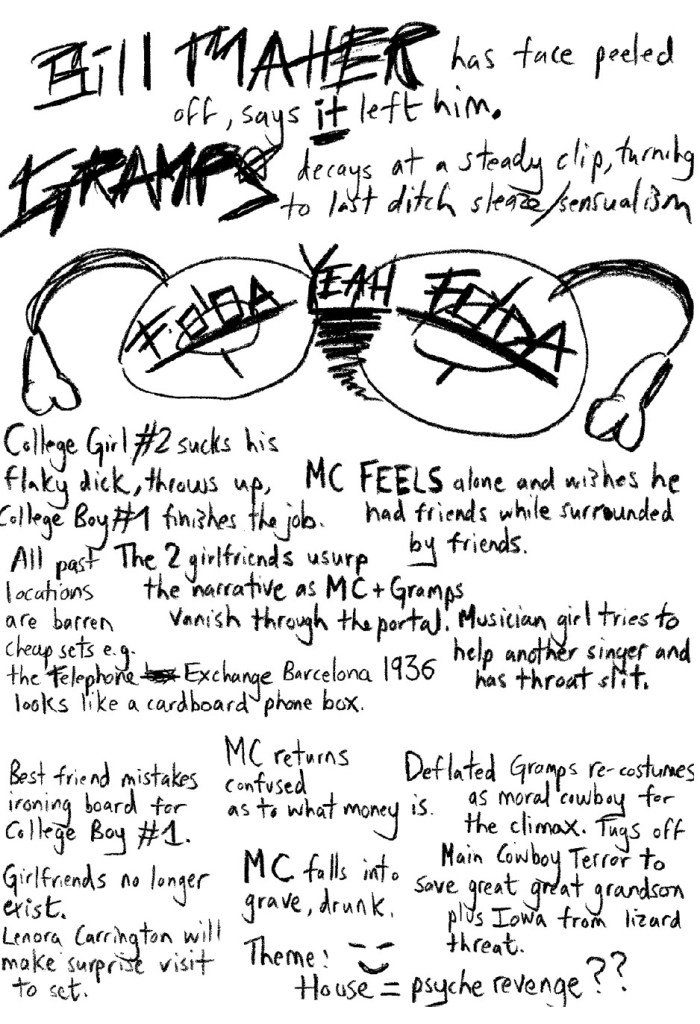 Bill MAHER has face peeled
off, says it left him.
GRAMPS decays at a steady clip, turning
to last ditch sleaze/sensualism
YEAH
College Girl #2 sucks his
flaky dick, throws up,
College Boy #1 finishes the job.
MC FEELS alone and wishes he
had friends while surrounded
by friends.
All past
locations
are barren
cheap sets e.g.
the Telephone Exchange Barcelona 1936
looks like a cardboard phone box.
The 2 girlfriends usurp
the narrative as MC + Gramps
vanish through the portal.
Musician girl tries to
help another singer and
has throat slit.
Best friend mistakes
ironing board for
College Boy #1.
Girlfriends no longer
exist.
Lenora Carrington will
make surprise visit
to set.
MC returns
confused
as to what money is.
MC falls into
grave, drunk.
Deflated Gramps re-costumes
as moral cowboy for
the climax. Tugs off
Main Cowboy Terror to
save great great grandson
plus Iowa from lizard
threat.
Theme:
House = psyche revenge??